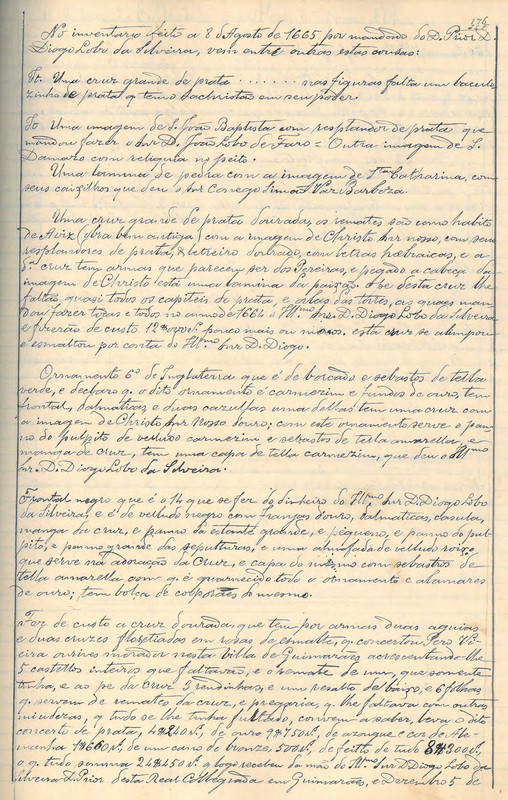 176
No inventario feito a 8 de Agosto de 1665 por mandado do D. Prior D.
Diogo Lobo da Silveira, vem entre outras estas cousas:
It. Uma cruz grande de prata . . . . . . . nas figuras falta um baculo
zinho de prata q tem o Sachristão em seu poder.
It Uma imagem de S. João Baptista com resplandor de prata que
mandou fazer o Snr D. João Lobo de Faro = Outra imagem de S.
Damazo com reliquia no peito.
Uma lamina de pedra com a imagem de Sta Catharina, com
seus caixilhos que deu o Snr Conego Simão Vaz Barboza.
Uma cruz grande de prata dourada, os remates são como habito
de Aviz (obra bem antiga) com a imagem de Christo Snr nosso, com seus
resplandores de prata, & letreiro dourado, com letras hebraicas, e a
da cruz tem armas que parecem ser dos Pereiras, e pegado a cabeça da
imagem de Christo está uma lamina da paixão. A pe desta cruz lhe
faltão quasi todos os capiteis de prata, e orlas das torres, as quaes man
dou fazer todas e todos no anno de 1664 o Illmo Snr. D. Diogo Lobo da Silveira
e fizerão de custo 12$000 rs. pouco mais ou menos. esta cruz se alimpou
e esmaltou por conta do Illmo Snr. D. Diogo.
Ornamento 6º de Inglaterra que é de borcado e sebastos de tella
verde, e declaro q. o dito ornamento é carmezim e fundos de ouro, tem
frontal, dalmaticas e duas cazulas uma dellas tem uma cruz com
a imagem de Christo Snr Nosso d'ouro; com este ornamento serve o pan
no do pulpito de veludo carmezim e sebastos de tella amarella, e
manga de cruz, tem uma capa de tella carmezim, que deu o Illmo
Snr. D. Diogo Lobo da Silveira.
Frontal negro que é o 14 que se fez do dinheiro do Illmo Snr D. Diogo Lobo
da Silveira, e é de veludo negro com franjas d'ouro, dalmaticas, casula,
manga da cruz, e panno da estante grande, e pequeno, e panno do pul-
pito, e panno grande das sepulturas, e uma almofada de velludo roixo
que serve na adoração da Cruz, e capa do mesmo com sebastros de
tella amarella com q. é guarnecido todo o ornamento e alamares
de ouro; tem bolça de corporaes do mesmo.
Fez de custo a cruz dourada, que tem por armas duas aguias
e duas cruzes floretiadas em rosas de esmalte, q. concertou Pero Vi-
eira ourives morador nesta villa de Guimarães acrescentando-lhe
5 castellos inteiros que faltavão, e o remate de um, que somente
tinha, e ao pe da Cruz 5 rendinhas, e um resalto da baixo, e 6 folhas
q. servem de remates da cruz, e pregaria, q. lhe faltava com outras
miudezas, q tudo se lhe tinha furtado, convem a saber, leva o dito
concerto de prata, 4$240 rs, de ouro 9$750 rs., de azougue e car de Ale-
manha 1$660 rs, de um cano de bronze, 500 rs. de feitio de tudo 8$300 rs.,
o q. tudo somma 24$450 rs. q logo recebeu da mão do Illmo Snr. D. Diogo Lobo da
Silveira D. Prior desta Real Collegiada em Guimarães, e Dezembro 5 de